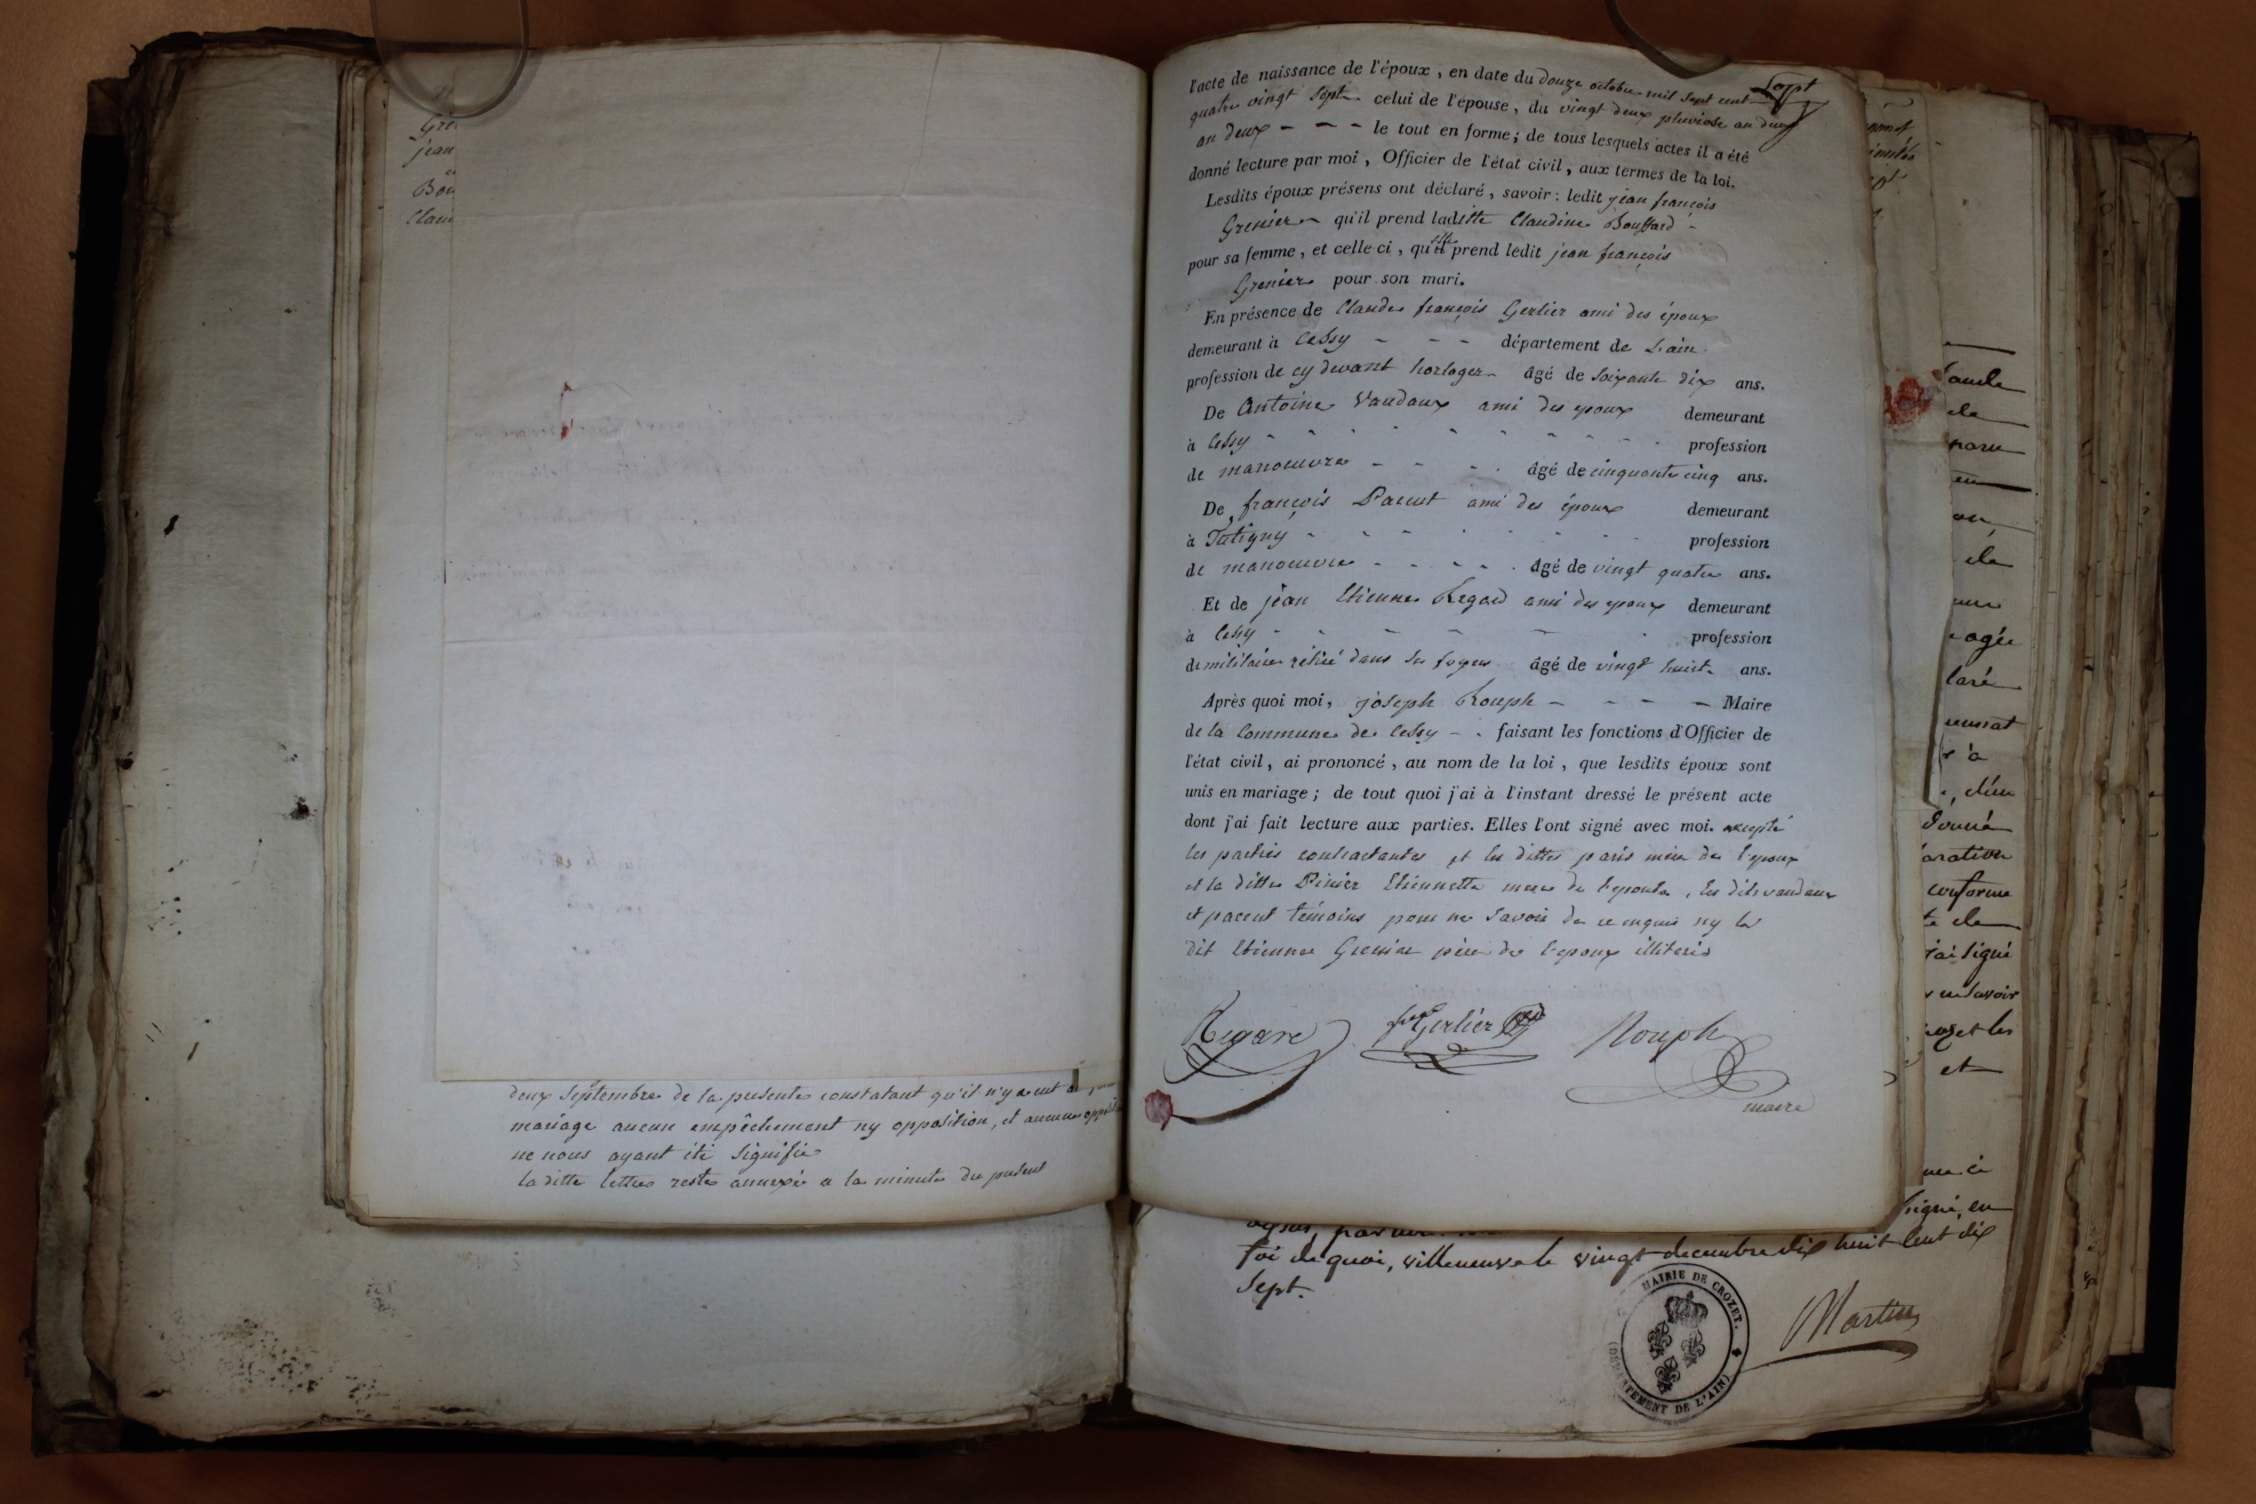 Gre
jean
Bou
Clau
deux Septembre de la presente constatant qu'il n'y a eut a
mariage aucun empêchement ny opposition, et aucune opposit
ne nous ayant été Signifié
la ditte lettre reste annexée a la minute du present
Sept
l'acte de naissance de l'époux, en date du douze octobre mil Sept cent
quatre vingt Sept celui de l'épouse, du vingt deux pluviose an deux
an deux - - - le tout en forme; de tous lesquels actes il a été
donné lecture par moi, Officier de l'état civil, aux termes de la loi.
Lesdits époux présens ont déclaré, savoir: ledit jean françois
Grenier - qu'il prend laditte Claudine Bouffard -
pour sa femme, et celle ci, qu'elle prend ledit jean françois
Grenier pour son mari.
En présence de Claude françois Gerlier ami des époux
demeurant à Cessy - - - département de L'ain
profession de cy devant horloger - âgé de Soixante dix ans.
De Antoine Vaudaux ami des epoux demeurant
à Cessy - - - - - - - - - profession
de manoeuvre - - - - âgé de cinquante cinq ans.
De françois Pacent ami des époux demeurant
à Tutigny - - - - - - - profession
de manoeuvre - - - - - âgé de vingt quatre ans.
Et de jean Etienne Regard ami des epoux demeurant
à Cessy - - - - - - profession
de militaire rétiré dans Ses foyers âgé de vingt huit ans.
Après quoi moi, joseph Rouph - - - - Maire
de la Commune de Cessy - - faisant les fonctions d'Officier de
l'état civil, ai prononcé, au nom de la loi, que lesdits époux sont
unis en mariage; de tout quoi j'ai à l'instant dressé le présent acte
dont j'ai fait lecture aux parties. Elles l'ont signé avec moi. excepté
les parties contractantes et les dittes paris mere de l'epoux
et la ditte Pinier Etiennette mere de l'epouse, les dits vaudaux
et pacent témoins pour ne Savoir de ce enquis ny le
dit Etienne Grenier père de l'epoux illiteris
Regard
Gerlier
Rouph
maire
foi de quoi, villeneuve le vingt decembre dix huit Cent dix
Sept.
MAIRIE DE CROZET.
(DÉPARTEMENT DE L'AIN)
Martin
agée
laré
à
donné
aration
conforme
j'ai Signé
en Savoir
et les
et
Signé, en